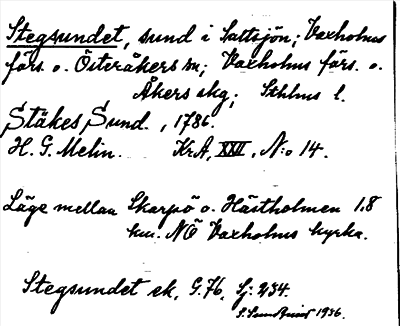 Stegsundet, sund i Saltsjön; Vaxholms
förs. o. Österåkers sn; Vaxholms förs. o.
Åkers skg; Sthlms l.
Stäkes Sund., 1786.
H. G. Melin. KrA, XXII, N:o 14.
Läge mellan Skarpö o. Hästholmen 1.8
km. NÖ Vaxholms kyrka.
Stegsundet ek. G. 76, Sj: 234.
1936.